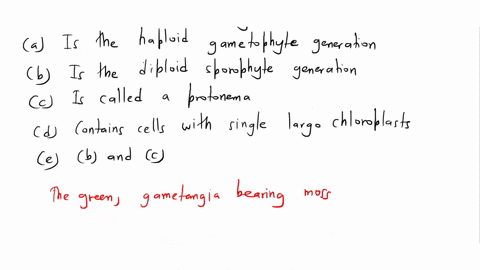 (a) Is the haploid gametophyte generation
(b) Is the diploid sporophyte generation
(c) Is called a protonema
(d) Contains cells with single largo chloroplasts
(e) (b) and (c)
The green, gametangia bearing moss